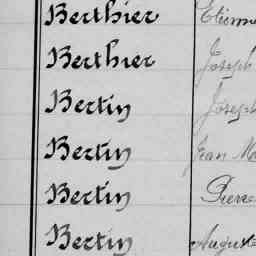 Berthier Etienne
Berthier Joseph
Bertin Joseph
Bertin Jean M
Bertin Pierre
Bertin Auguste